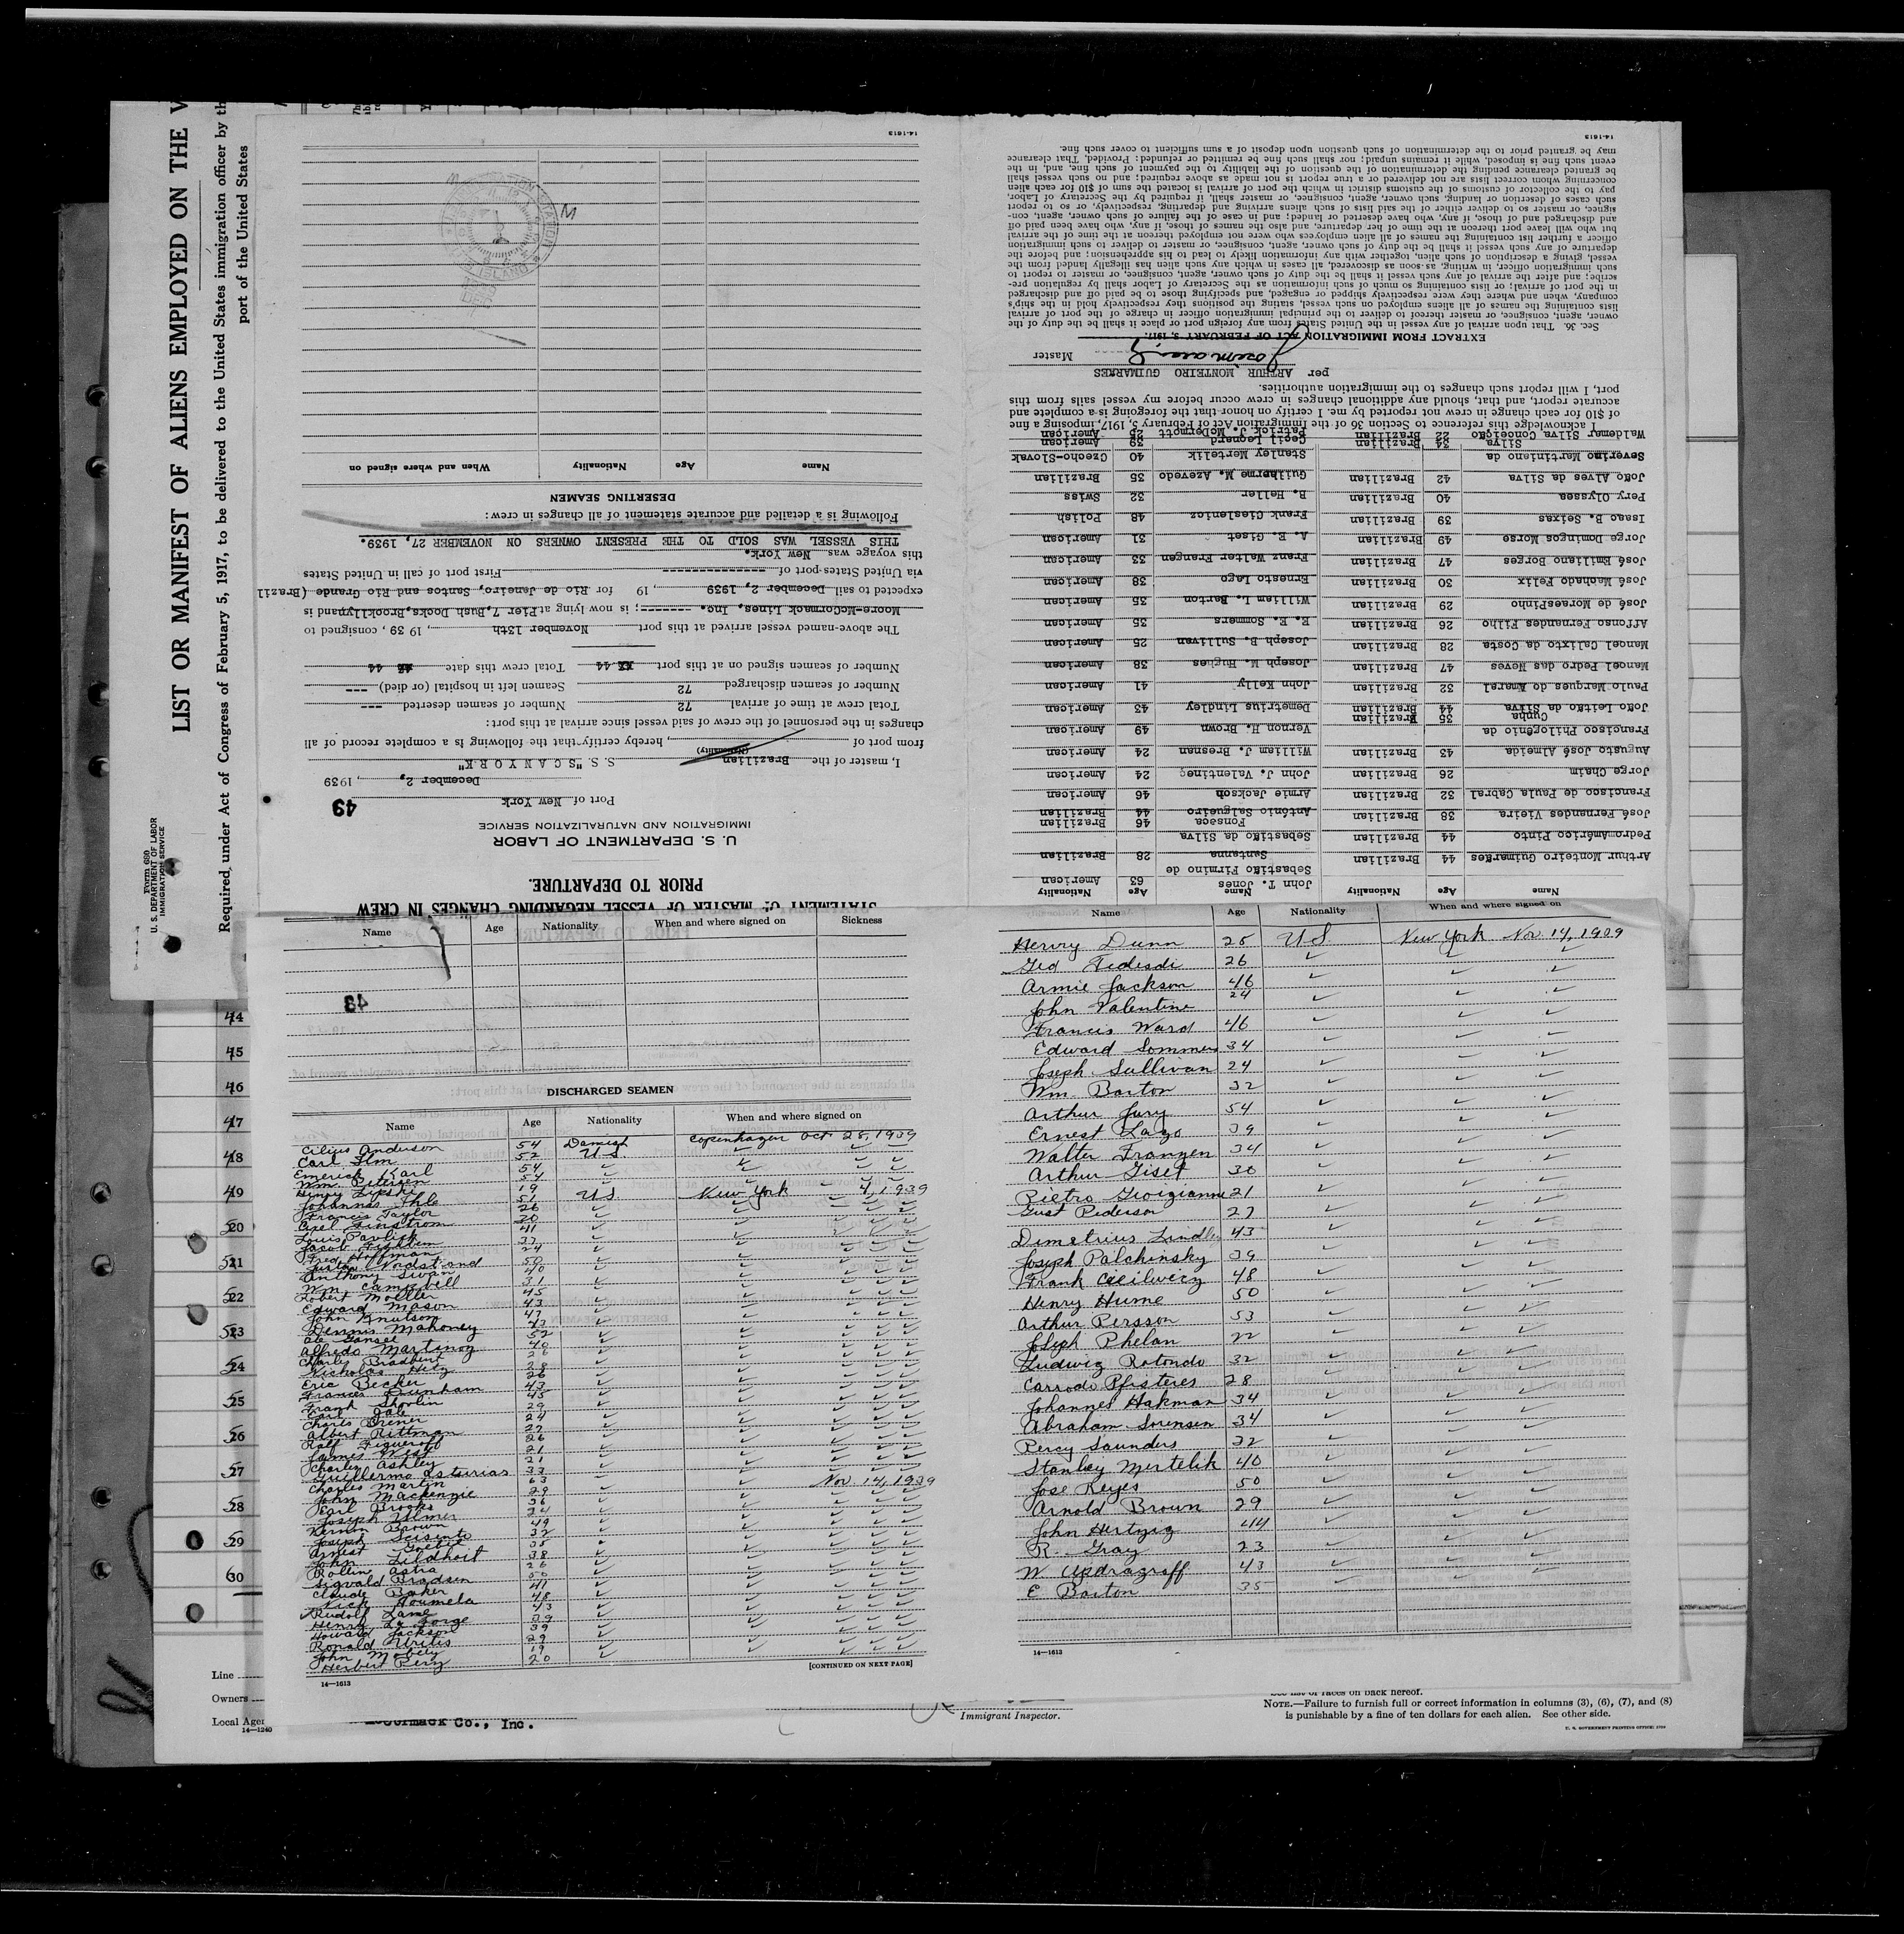 LIST OR MANIFEST OF ALIENS EMPLOYED ON THE
Required under Act of Congress of February 5, 1917, to be delivered to the United States immigration officer by th
port of the United States
Form 680
U. S. DEPARTMENT OF LABOR
IMMIGRATION SERVICE
STATEMENT OF MASTER OF VESSEL REGARDING CHANGES IN CREW
PRIOR TO DEPARTURE.
U. S. DEPARTMENT OF LABOR
IMMIGRATION AND NATURALIZATION SERVICE
49
Port of New York
December 2, 1939
I, master of the Brazilian S. S. "SCANYORK"
(Nationality)
from port of , hereby certify that the following is a complete record of all
changes in the personnel of the crew of said vessel since arrival at this port:
Total crew at time of arrival 72 Number of seamen deserted ---
Number of seamen discharged 72 Seamen left in hospital (or died) ---
Number of seamen signed on at this port 44 Total crew this date 44
The above-named vessel arrived at this port November 13th, 19 39, consigned to
Moore-McCormack Lines, Inc. ; is now lying at Pier 7, Bush Docks, Brooklyn and is
expected to sail December 2, 1939, 19 for Rio de Janeiro, Santos and Rio Grande (Brazil
via United States port of First port of call in United States
this voyage was New York.
THIS VESSEL WAS SOLD TO THE PRESENT OWNERS ON NOVEMBER 27, 1939.
Following is a detailed and accurate statement of all changes in crew:
DESERTING SEAMEN
Name Age Nationality When and where signed on
14-1613
Name Age Nationality Name Age Nationality
John T. Jones 63 American
Arthur Monteiro Guimarães 44 Brazilian Sebastião Firmino de Santanna 28 Brazilian
Pedro Américo Pinto 44 Brazilian Sebastião da Silva Fonseca 46 Brazilian
José Fernandes Vieira 38 Brazilian António Salgueiro 44 Brazilian
Francisco de Paula Cabral 32 Brazilian Armie Jackson 46 American
Jorge Chaim 26 Brazilian John J. Valentine 24 American
Augusto José Almeida 43 Brazilian William J. Bresnan 24 American
Francisco Philogênio da Cunha 35 Brazilian Vernon H. Brown 49 American
João Leitão da Silva 44 Brazilian Demetrius Lindley 43 American
Paulo Marques do Amaral 32 Brazilian John Kelly 41 American
Manoel Pedro das Neves 47 Brazilian Joseph M. Hughes 38 American
Manoel Calixto da Costa 28 Brazilian Joseph B. Sullivan 25 American
Affonso Fernandes Filho 26 Brazilian E. E. Sommers 35 American
José de Moraes Pinho 29 Brazilian William L. Barton 35 American
José Machado Felix 30 Brazilian Ernesto Lago 38 American
José Emiliano Borges 47 Brazilian Franz Walter Frangen 33 American
Jorge Domingos Morse 49 Brazilian A. E. Giset 31 American
Isaac B. Seixas 39 Brazilian Frank Cieslenicz 48 Polish
Pery Olyssea 40 Brazilian B. Heller 32 Swiss
João Alves da Silva 42 Brazilian Guilherme M. Azevedo 35 Brazilian
Severino Martiniano da Silva 34 Brazilian Stanley Mertelik 40 Czecho-Slovak
Cecil Leonard 39 American
Waldemar Silva Conceição 22 Brazilian Patrick J. McDermott 25 American
I acknowledge this reference to Section 36 of the Immigration Act of February 5, 1917, imposing a fine
of $10 for each change in crew not reported by me. I certify on honor that the foregoing is a complete and
accurate report, and that, should any additional changes in crew occur before my vessel sails from this
port, I will report such changes to the immigration authorities.
per ARTHUR MONTEIRO GUIMARES
Master
EXTRACT FROM IMMIGRATION ACT OF FEBRUARY 5, 1917.
Sec. 36. That upon arrival of any vessel in the United States from any foreign port or place it shall be the duty of the
owner, agent, consignee, or master thereof to deliver to the principal immigration officer in charge of the port of arrival
lists containing the names of all aliens employed on such vessel, stating the positions they respectively hold in the ship's
company, when and where they were respectively shipped or engaged, and specifying those to be paid off and discharged
in the port of arrival; or lists containing so much of such information as the Secretary of Labor shall by regulation pre-
scribe; and after the arrival of any such vessel it shall be the duty of such owner, agent, consignee, or master to report to
such immigration officer, in writing, as soon as discovered, all cases in which any such alien has illegally landed from the
vessel, giving a description of such alien, together with any information likely to lead to his apprehension; and before the
departure of any such vessel it shall be the duty of such owner, agent, consignee, or master to deliver to such immigration
officer a further list containing the names of all alien employees who were not employed thereon at the time of the arrival
but who will leave port thereon at the time of her departure, and also the names of those, if any, who have been paid off
and discharged and of those, if any, who have deserted or landed; and in case of the failure of such owner, agent, con-
signee, or master so to deliver either of the said lists of such aliens arriving and departing, respectively, or so to report
such cases of desertion or landing, such owner, agent, consignee, or master, shall, if required by the Secretary of Labor,
pay to the collector of customs of the customs district in which the port of arrival is located the sum of $10 for each alien
concerning whom correct lists are not delivered or a true report is not made as above required; and no such vessel shall
be granted clearance pending the determination of the question of the liability to the payment of such fine and, in the
event such fine is imposed, while it remains unpaid; nor shall such fine be remitted or refunded: Provided, That clearance
may be granted prior to the determination of such question upon deposit of a sum sufficient to cover such fine.
14-1613
Name Age Nationality When and where signed on Sickness
43
DISCHARGED SEAMEN
Name Age Nationality When and where signed on
Cilius Anderson 54 Danish Copenhagen Oct 25, 1939
Carl Ilm 52 U S
Emerich Karl 54
Wm. Petersen 54
Henry Lipski 19
Johannes Ihle 51 U S. New York 4, 1939
Francis Taylor 26
Axel Finstrom 30
Louis Pavlick 41
Jacob Fishbein 37
Fred Hoffman 24
Justav Nordstrand 50
Anthony Swan 40
Wm Campbell 31
Robert Moller 45
Edward Mason 43
John Knutson 47
Dennis Mahoney 43
Abe Gansee 52
Alfredo Martinoz 40
Charles Bradbury 26
Nicholas Hetz 28
Eric Becker 26
Frances Dunham 43
Frank Shovlin 45
Carl Jale 29
Charles Brener 24
Albert Rittman 27
Ralf Figueroff 26
James West 21
Charles Ashley 21
Guillermo Asturias 33
Charles Martin 63 Nov. 14, 1939
John Mackenzie 29
Earl Brooks 36
Joseph Ulmer 24
Vernon Brown 49
Joseph Scisento 32
Ernest Goebel 35
John Lildholt 38
Rollin Astra 26
Sigvald Bradsen 50
Claude Baker 41
Nick Houmela 48
Rudolf Lame 43
Henry La Forge 39
Howard Jackson 39
Ronald Writis 29
John Mobely 19
Herbert Pery 20
[CONTINUED ON NEXT PAGE]
14—1613
Name Age Nationality When and where signed on
Henry Dunn 25 U S. New York Nov. 14, 1939
Geo Tedesdi 26
Armie Jackson 46
John Valentine 24
Francis Ward 46
Edward Sommers 34
Joseph Sullivan 24
Wm. Barton 32
Arthur Jury 54
Ernest Lago 39
Walter Franzen 34
Arthur Giset 30
Pietro Giorgianni 21
Gust Pederson 27
Demetrius Lindley 43
Joseph Palchinsky 39
Frank 48
Henry Hume 50
Arthur Persson 53
Joseph Phelan 22
Ludwig Rotondo 32
Carrodo Pfisteres 28
Johannes Hakman 34
Abraham Sorensen 34
Percy Saunders 32
Stanley Mertelik 40
Jose Reyes 50
Arnold Brown 29
John Hertzig 44
R. Gray 23
W Updragraff 43
E Barton 35
14—1613
44
45
46
47
48
49
50
51
52
53
54
55
56
57
58
59
60
Line
Owners
Local Agen
14—1240
McCormack Co., Inc.
Immigrant Inspector.
See list of races on back hereof.
NOTE.—Failure to furnish full or correct information in columns (3), (6), (7), and (8)
is punishable by a fine of ten dollars for each alien. See other side.
U. S. GOVERNMENT PRINTING OFFICE: